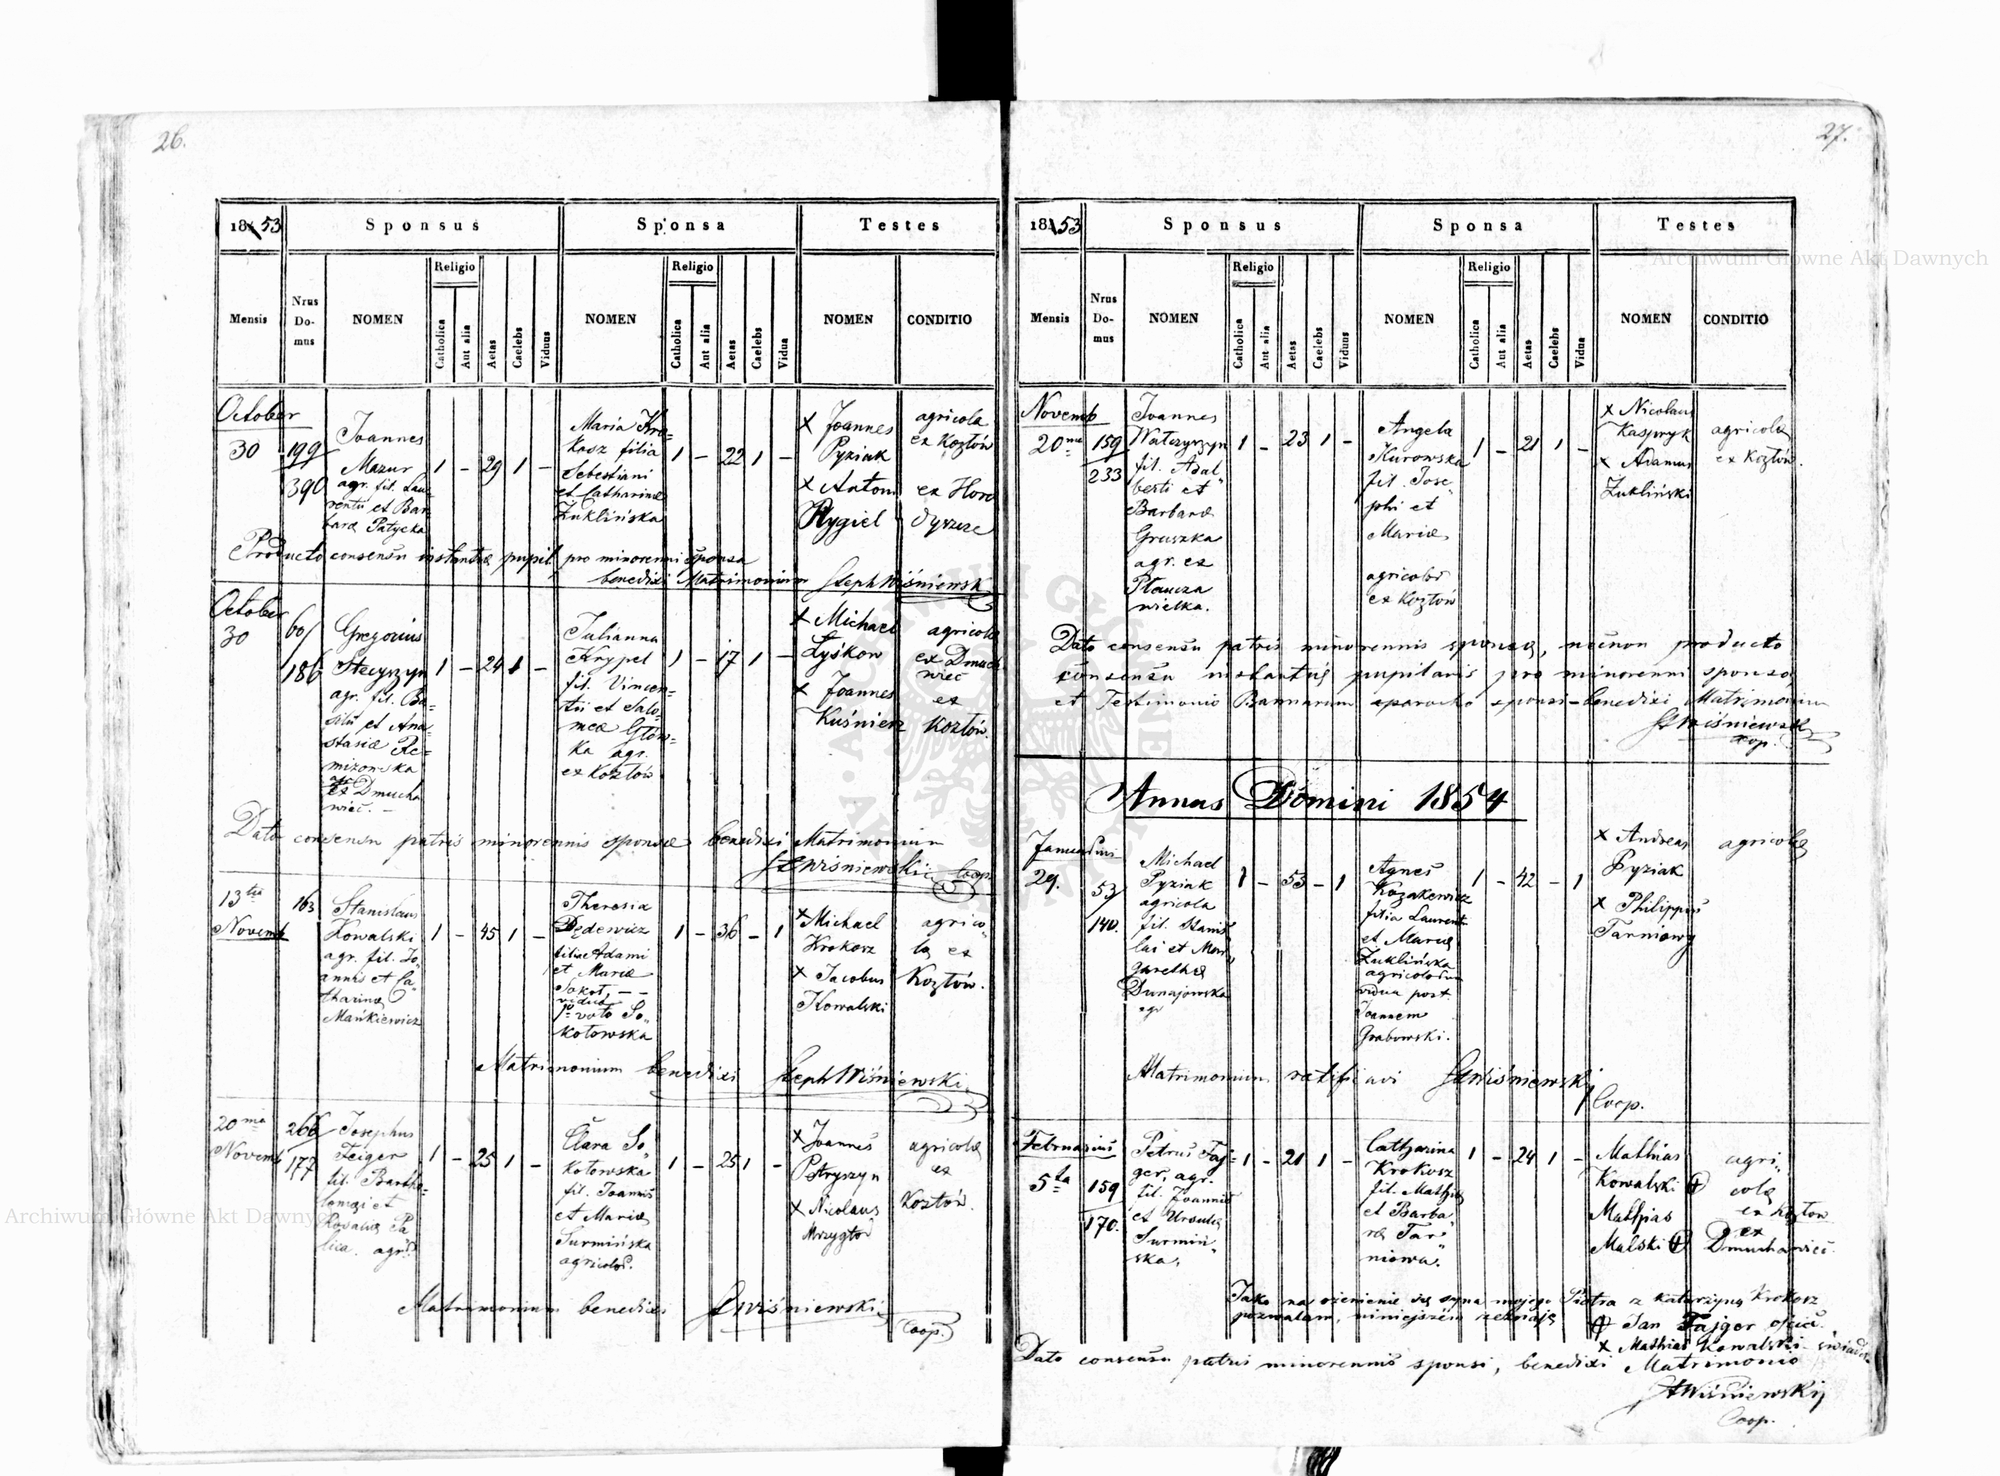 26.
1853
Sponsus
Sponsa
Testes
Mensis
Nrus Do-mus
NOMEN
Religio
Catholica
Aut alia
Aetas
Caelebs
Viduus
NOMEN
Religio
Catholica
Aut alia
Aetas
Caelebs
Vidua
NOMEN
CONDITIO
October
30
199
390
Joannes
Mazur
agr. fil. Lau-
rentii et Bar
barae Patycka
1 – 29 1 –
Maria Kro-
kosz filia
Sebestiani
et Catharinae
Zuklińska
1 – 22 1 –
x Joannes
Pyziak
x Antoni
Rygiel
agricola
ex Kozłów
ex Horo
dyszcze
Producto consensu instantiae pupil pro minorenni sponsa
benedixi Matrimonium Steph Wiśniewsk
October
30
60
186
Gregorius
Stecyszyn
agr. fil. Ba-
silii et Ana
stasiae Re-
mizowska
agr
ex Dmucha
wiec. –
1 – 24 1 –
Julianna
Krypel
fil. Vincen-
tii et Salo-
mea Głów-
ka agr.
ex Kozłów
1 – 17 1 –
x Michael
Łyśkow
x Joannes
Kuśnierz
agricola
ex Dmuch
wiec
ex
Kozłów.
Dato consensu patris minorennis sponsae benedixi Matrimonium
St Wiśniewski Coop.
13tia
Novemb
163
Stanislaus
Kowalski
agr. fil. Jo
annis et Ca
tharinae
Mańkiewicz
1 – 45 1 –
Theresia
Dędewicz
filia Adami
et Mariae
Sokoł, – –
vidua
1o voto So-
kołowska
1 – 36 – 1
x Michael
Krokosz
x Jacobus
Kowalski
agrico-
lae ex
Kozłów.
Matrimonium benedixi Steph Wiśniewski
20ma
Novemb
266
177
Josephus
Feiger
fil. Bartho-
lomaei et
Rosaliae Pa
lica. agr.
1 – 25 1 –
Clara So-
kołowska
fil. Joannis
et Mariae
Surmińska
agricolar.
1 – 25 1 –
x Joannes
Petryszyn
x Nicolaus
Mrzygłód
agricolae
ex
Kozłów.
Matrimonium benedixi St Wiśniewski
Coop.
27.
1853
Sponsus
Sponsa
Testes
Mensis
Nrus Do-mus
NOMEN
Religio
Catholica
Aut alia
Aetas
Caelebs
Viduus
NOMEN
Religio
Catholica
Aut alia
Aetas
Caelebs
Vidua
NOMEN
CONDITIO
Novemb
20ma
159
233
Joannes
Walczyszyn
fil. Adal-
berti et
Barbarae
Gruszka
agr. ex
Płaucza
wielka.
1 – 23 1 –
Angela
Kurowska
fil. Jose-
phi et
Mariae
agricolar
ex Kozłów
1 – 21 1 –
x Nicolaus
Kasprzyk
x Adamus
Zukliński
agricolae
ex Kozłów.
Dato consensu patris minorennis sponsae, necnon producto
consensu instantiae pupilaris pro minorenni sponso
et Testimonio Bannarum a parocho sponsi – benedixi Matrimonium
St Wiśniewski
Coop.
Annus Domini 1854
Januarius
29.
53
140.
Michael
Pyziak
agricola
fil. Stanis-
lai et Mar-
garethae
Dunajowska
agr
1 – 53 – 1
Agnes
Kozakewicz
filia Laurent
et Mariae
Zuklińska
agricolarum
vidua post
Joannem
Grabowski.
1 – 42 – 1
x Andreas
Pyziak
x Philippus
Tarniowy
agricolae
Matrimonium ratificavi St Wiśniewski
Coop.
Februarius
5ta
159
170.
Petrus Faj-
ger, agr.
fil. Joannis
et Ursulae
Surmiń-
ska,
1 – 21 1 –
Catharina
Krokosz
fil. Mathiae
et Barba-
rae Tar-
niowa.
1 – 24 1 –
Mathias
Kowalski
Mathias
Malski
agri-
colae
ex Kozłow
ex
Dmuchawiec.
Jako na ożenienie się syna mojego Piotra z Katarzyną Krokosz
pozwalam, niniejszém zeznaję
Jan Fajger ojciec.
x Mathias Kowalski świadek
Dato consensu patris minorennis sponsi, benedixi Matrimonio
St Wiśniewski
Coop.
Archiwum Główne Akt Dawnych
Archiwum Główne Akt Dawnych